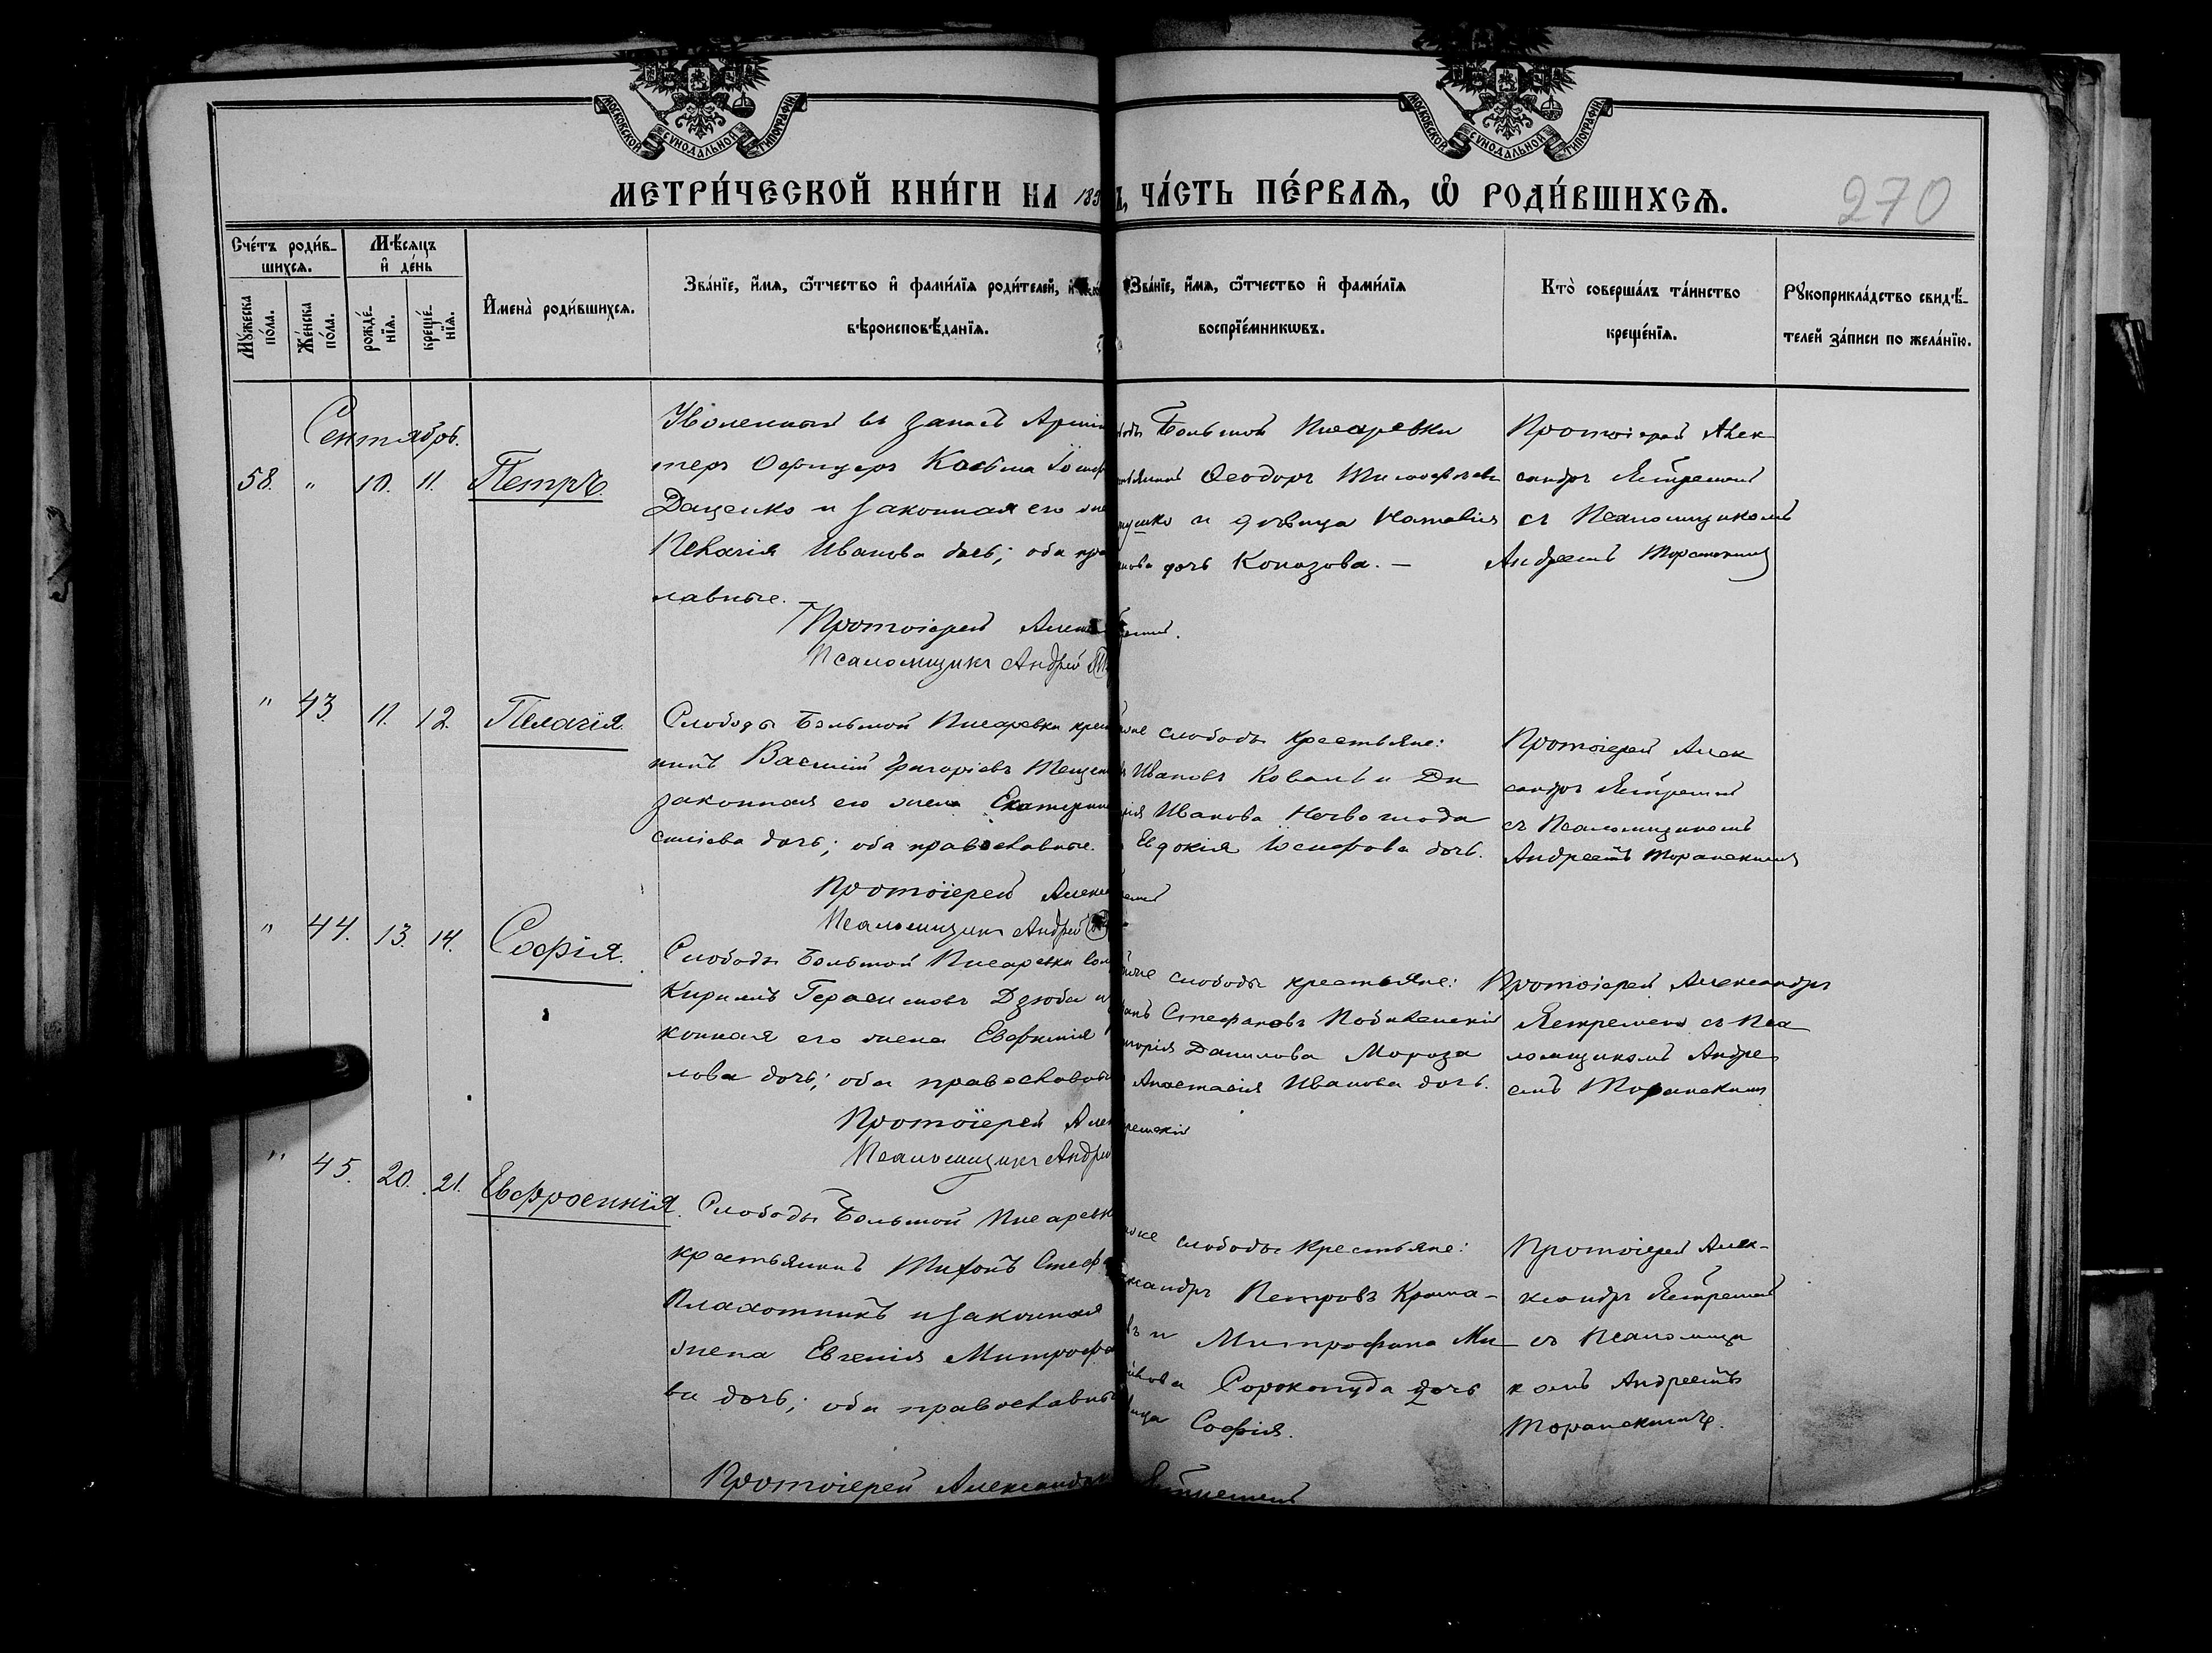 МОСКОВСКОЙ СУНОДАЛЬНОЙ ТИПОГРАФІИ
МОСКОВСКОЙ СУНОДАЛЬНОЙ ТИПОГРАФІИ
МЕТРИ́ЧЕСКОЙ КНИ́ГИ НА 189 ЧА́СТЬ ПЕ́РВАѦ, Ѡ҆ РОДИ́ВШИХСѦ.
270
Сче́тъ роди́в-
шихсѧ.
Мѣ́сѧцъ
и҆ де́нь
Мꙋ́жеска по́ла.
Же́нска по́ла.
рожде́-
нїѧ.
креще́-
нїѧ.
И҆мена̀ роди́вшихсѧ.
Зва́нїе, и҆́мѧ, ѻ҆́тчество и҆ фами́лїѧ роди́телей, и҆
вѣроисповѣ́данїѧ.
Зва́нїе, и҆́мѧ, ѻ҆́тчество и҆ фами́лїѧ
воспрїе́мникѡвъ.
Кто̀ соверша́лъ та́инство
креще́нїѧ.
Рꙋкоприкла́дство свидѣ́-
телей за́писи по жела́нїю.
Сентябрь.
58. " 10. 11. Петръ.
Уволенный въ запасъ Арміи
теръ Офицеръ Косьма Іосиф
Даценко и законная его же
Пелагія Иванова дочь; оба пра
лавные.
Протоіерей Алек
Псаломщикъ Андрей
Большой Писаревки
Ѳеодоръ
и дѣвица Наталія
дочь Колозова. —
Протоіерей Алек
сандръ Ястремскій
съ Псаломщикомъ
Андреемъ Торанскимъ
" 43. 11. 12. Пелагія.
Слободы Большой Писаревки крест
нинъ Василій Григоріевъ
законная его жена Екатерина
силіева дочь; оба православные.
Протоіерей Алекс
Псаломщикъ Андрей
слободы крестьяне:
Ивановъ Коваль и Да
Иванова
Евдокія Іосифова дочь.
Протоіерей Алек
сандръ Ястремскій
съ Псаломщикомъ
Андреемъ Торанскимъ
" 44. 13. 14. Софія.
Слободы Большой Писаревки
Кириллъ Герасимовъ Дзюба и
конная его жена Евфимія
лова дочь; оба православные
Протоіерей Алек
Псаломщикъ Андрей
слободы крестьяне:
Стефановъ
Данилова Мороза
Анастасія Иванова дочь.
Протоіерей Александръ
Ястремскій съ Пса
ломщикомъ Андре
емъ Торанскимъ
" 45. 20. 21. Евфросинія.
Слободы Большой Писаревк
крестьянинъ Тихонъ Стеф
Плахотникъ и законная
жена Евгенія Митрофа
ва дочь; оба православны
слободы крестьяне:
Петровъ
и Митрофана Ми
Сорокопуда дочь
Софія.
Протоіерей Алек-
сандръ Ястремскій
съ Псаломщи
комъ Андреемъ
Торанскимъ.
Протоіерей Александръ Ястремскій